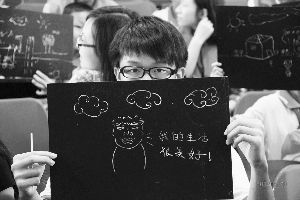 我的生活
很美好！